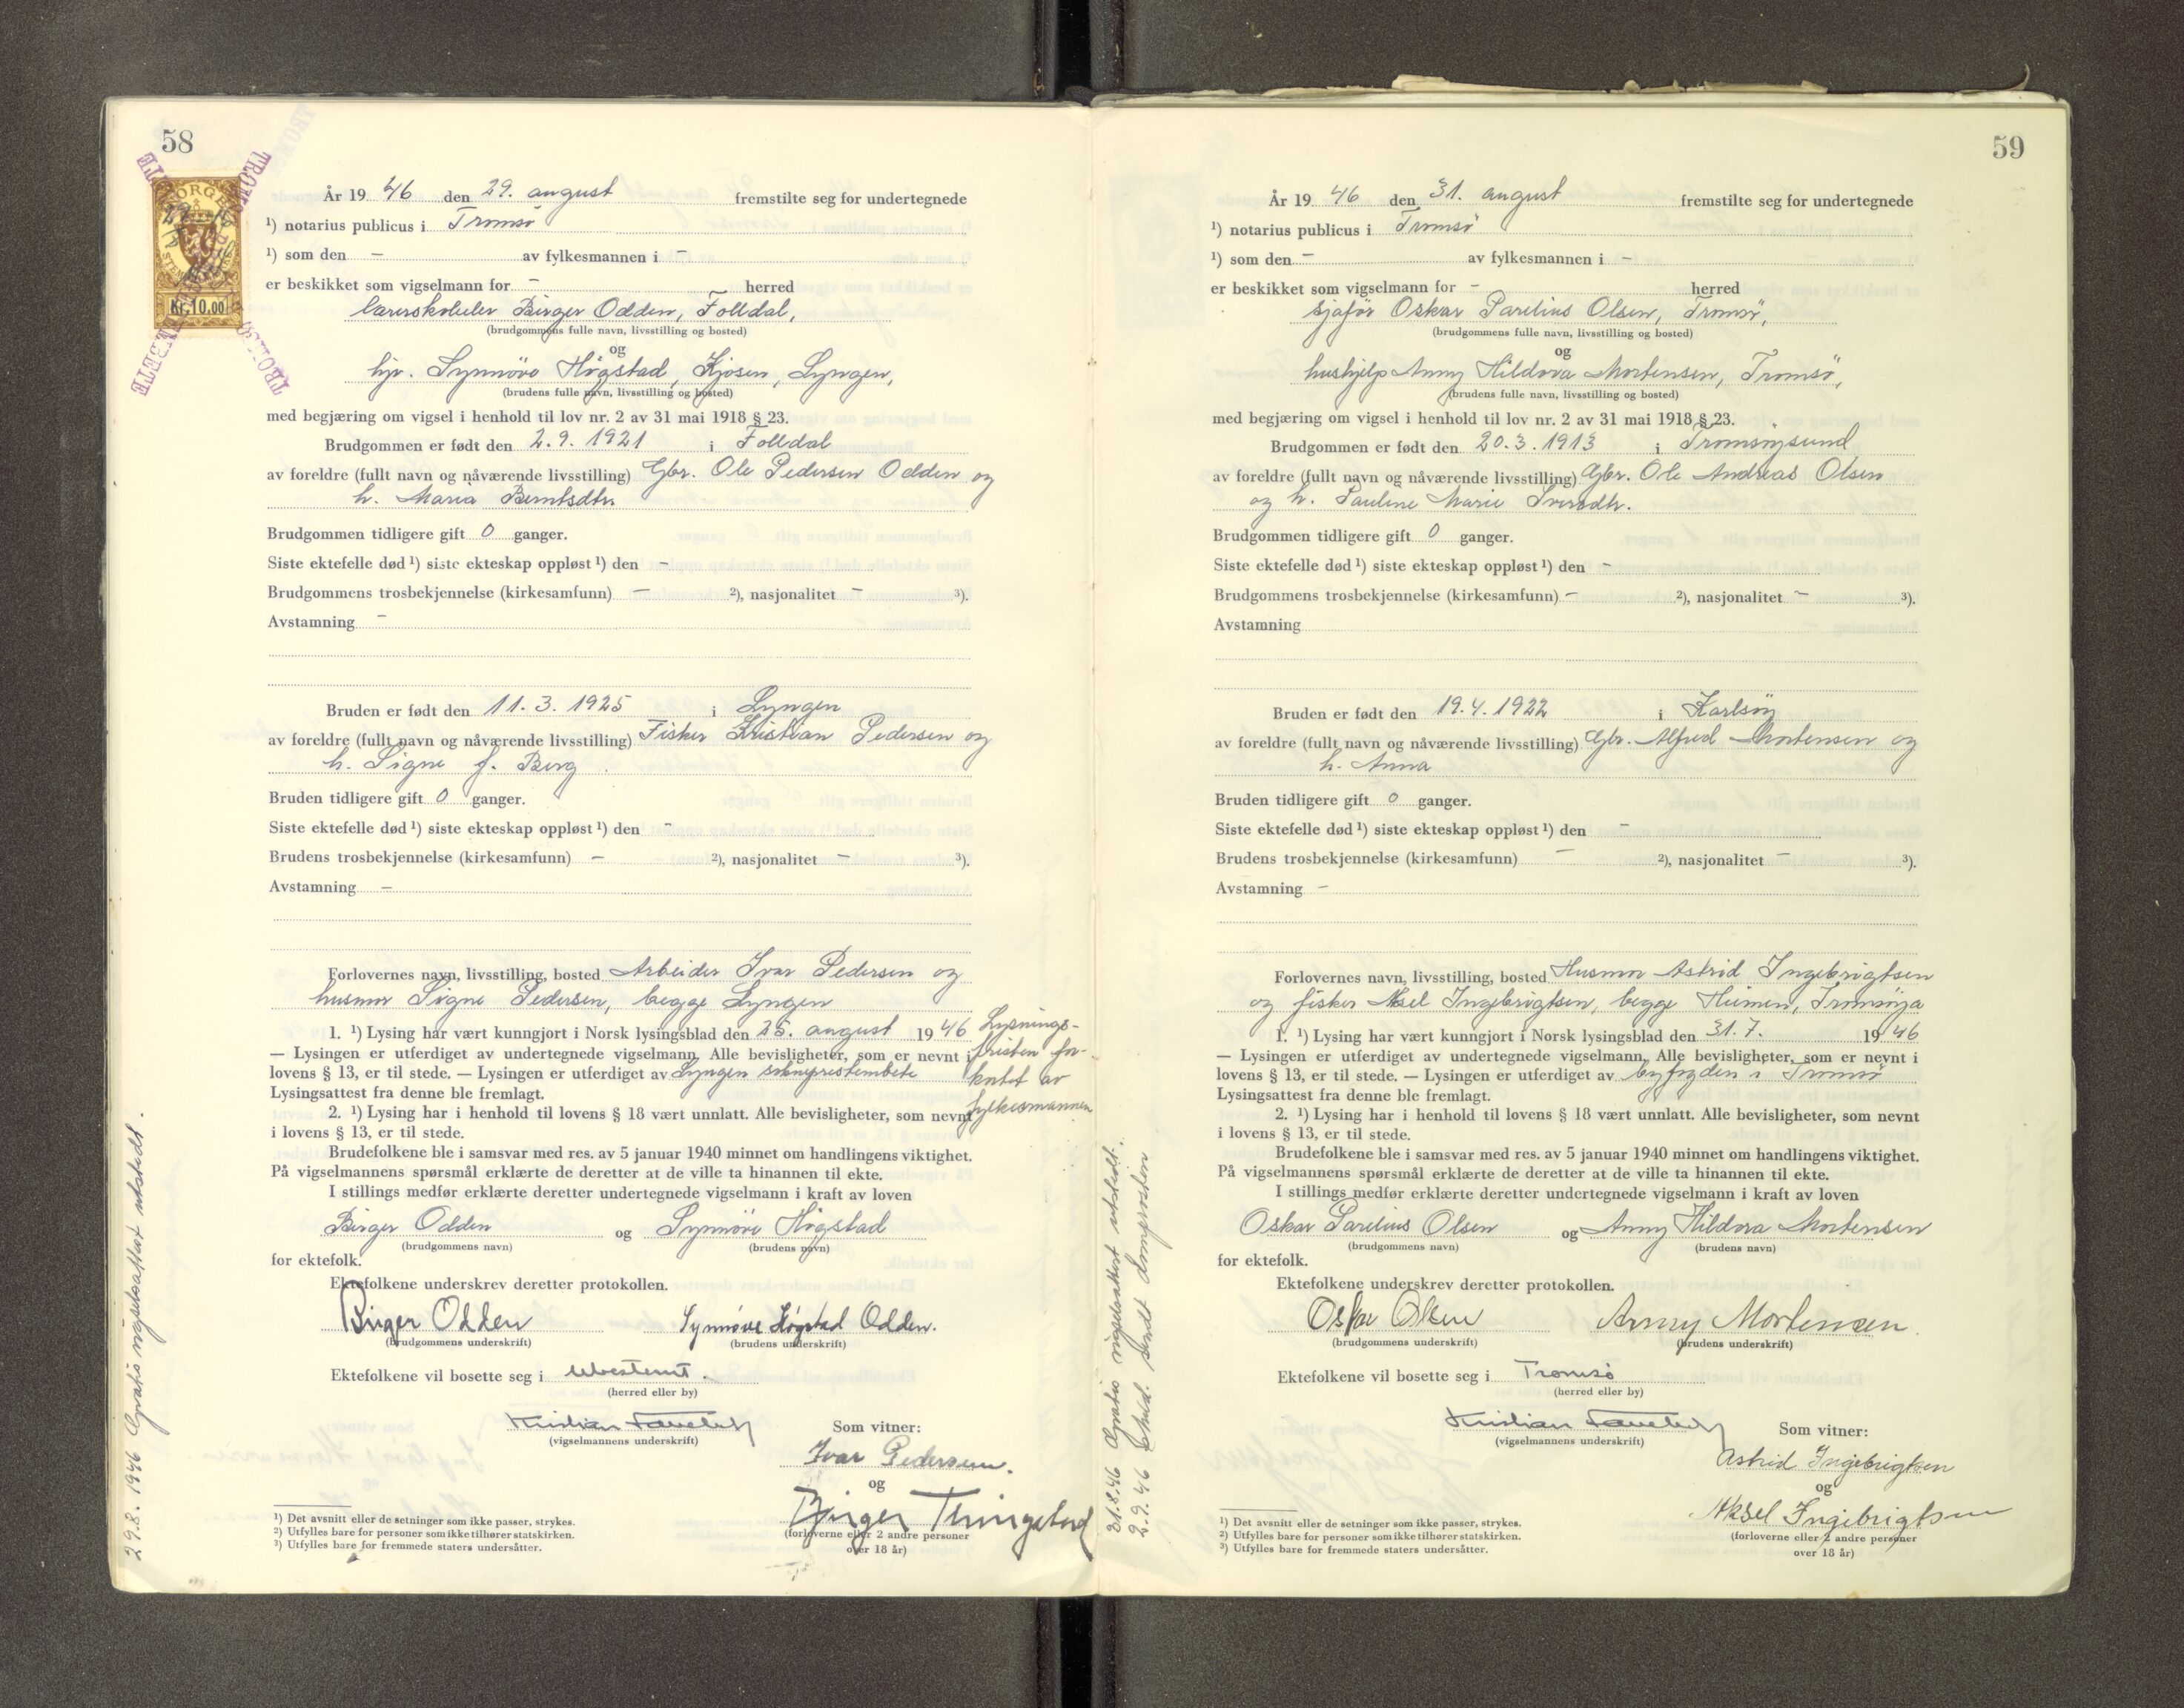 58
Kr. 10.00
År 19 46 den 29. august fremstilte seg for undertegnede
¹) notarius publicus i Tromsø
¹) som den – av fylkesmannen i –
er beskikket som vigselmann for – herred
lærerskoleelev Birger Odden, Folldal,
(brudgommens fulle navn, livsstilling og bosted)
og
hjv. Synnöve Högstad, Kjosen, Lyngen,
(brudens fulle navn, livsstilling og bosted)
med begjæring om vigsel i henhold til lov nr. 2 av 31 mai 1918 § 23.
Brudgommen er født den 2.9.1921 i Folldal
av foreldre (fullt navn og nåværende livsstilling) Gbr. Ole Pedersen Odden og
h. Maria Berntsdtr.
Brudgommen tidligere gift 0 ganger.
Siste ektefelle død ¹) siste ekteskap oppløst ¹) den –
Brudgommens trosbekjennelse (kirkesamfunn) – ²), nasjonalitet – ³).
Avstamning –
Bruden er født den 11.3.1925 i Lyngen
av foreldre (fullt navn og nåværende livsstilling) Fisker Kristian Pedersen og
h. Signe f. Berg.
Bruden tidligere gift 0 ganger.
Siste ektefelle død ¹) siste ekteskap oppløst ¹) den –
Brudens trosbekjennelse (kirkesamfunn) – ²), nasjonalitet – ³).
Avstamning –
Forlovernes navn, livsstilling, bosted Arbeider Ivar Pedersen og
husmor Signe Pedersen, begge Lyngen
1. ¹) Lysing har vært kunngjort i Norsk lysingsblad den 25. august 1946
— Lysingen er utferdiget av undertegnede vigselmann. Alle bevisligheter, som er nevnt i
lovens § 13, er til stede. — Lysingen er utferdiget av Lyngen sokneprestembete
Lysingsattest fra denne ble fremlagt.
Lysnings-
fristen for-
kortet av
fylkesmannen
2. ¹) Lysing har i henhold til lovens § 18 vært unnlatt. Alle bevisligheter, som nevnt
i lovens § 13, er til stede.
Brudefolkene ble i samsvar med res. av 5 januar 1940 minnet om handlingens viktighet.
På vigselmannens spørsmål erklærte de deretter at de ville ta hinannen til ekte.
I stillings medfør erklærte deretter undertegnede vigselmann i kraft av loven
Birger Odden og Synnöve Högstad
(brudgommens navn) (brudens navn)
for ektefolk.
Ektefolkene underskrev deretter protokollen.
Birger Odden Synnøve Høgstad Odden.
(brudgommens underskrift) (brudens underskrift)
Ektefolkene vil bosette seg i ubestemt.
(herred eller by)
Kristian
(vigselmannens underskrift)
Som vitner:
Ivar Pedersen.
og
Birger
(forloverne eller 2 andre personer
over 18 år)
¹) Det avsnitt eller de setninger som ikke passer, strykes.
²) Utfylles bare for personer som ikke tilhører statskirken.
³) Utfylles bare for fremmede staters undersåtter.
29.8.1946 Gratis vigselsattest utstedt.
59
År 19 46 den 31. august fremstilte seg for undertegnede
¹) notarius publicus i Tromsø
¹) som den – av fylkesmannen i –
er beskikket som vigselmann for – herred
sjåför Oskar Parelius Olsen, Tromsö,
(brudgommens fulle navn, livsstilling og bosted)
og
hushjelp Anny Hildora Mortensen, Tromsö,
(brudens fulle navn, livsstilling og bosted)
med begjæring om vigsel i henhold til lov nr. 2 av 31 mai 1918 § 23.
Brudgommen er født den 20.3.1913 i Tromsöysund
av foreldre (fullt navn og nåværende livsstilling) Gbr. Ole Andreas Olsen
og h. Pauline Marie
Brudgommen tidligere gift 0 ganger.
Siste ektefelle død ¹) siste ekteskap oppløst ¹) den –
Brudgommens trosbekjennelse (kirkesamfunn) – ²), nasjonalitet – ³).
Avstamning
Bruden er født den 19.4.1922 i Karlsöy
av foreldre (fullt navn og nåværende livsstilling) Gbr. Alfred Mortensen og
h. Anna
Bruden tidligere gift 0 ganger.
Siste ektefelle død ¹) siste ekteskap oppløst ¹) den –
Brudens trosbekjennelse (kirkesamfunn) – ²), nasjonalitet – ³).
Avstamning –
Forlovernes navn, livsstilling, bosted Husmor Astrid Ingebrigtsen
og fisker Aksel Ingebrigtsen, begge Tromsöya
1. ¹) Lysing har vært kunngjort i Norsk lysingsblad den 31.7. 1946
— Lysingen er utferdiget av undertegnede vigselmann. Alle bevisligheter, som er nevnt i
lovens § 13, er til stede. — Lysingen er utferdiget av byfogden i Tromsö
Lysingsattest fra denne ble fremlagt.
2. ¹) Lysing har i henhold til lovens § 18 vært unnlatt. Alle bevisligheter, som nevnt
i lovens § 13, er til stede.
Brudefolkene ble i samsvar med res. av 5 januar 1940 minnet om handlingens viktighet.
På vigselmannens spørsmål erklærte de deretter at de ville ta hinannen til ekte.
I stillings medfør erklærte deretter undertegnede vigselmann i kraft av loven
Oskar Parelius Olsen og Anny Hildora Mortensen
(brudgommens navn) (brudens navn)
for ektefolk.
Ektefolkene underskrev deretter protokollen.
Oskar Olsen Anny Mortensen.
(brudgommens underskrift) (brudens underskrift)
Ektefolkene vil bosette seg i Tromsø
(herred eller by)
Kristian
(vigselmannens underskrift)
Som vitner:
Astrid Ingebrigtsen
og
Aksel Ingebrigtsen
(forloverne eller 2 andre personer
over 18 år)
¹) Det avsnitt eller de setninger som ikke passer, strykes.
²) Utfylles bare for personer som ikke tilhører statskirken.
³) Utfylles bare for fremmede staters undersåtter.
31.8.46 Gratis vigselsattest utstedt.
2.9.46 sendt domprosten